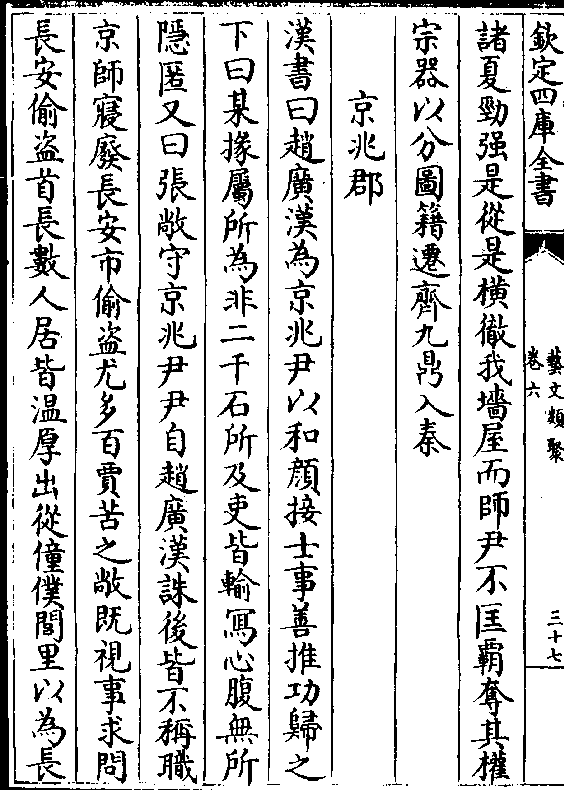 欽定四庫全書
藝文類聚
卷六
三十七
諸夏勁强是從是橫徹我墻屋而師尹不匡霸奪其權
宗器以分圖籍遷齊九鼎入秦
京兆郡
漢書曰趙廣漢為京兆尹以和顔接士事善推功歸之
下曰某掾屬所為非二千石所及吏皆輸寫心腹無所
隱匿又曰張敞守京兆尹尹自趙廣漢誅後皆不稱職
京師寖廢長安市偷盗尤多百賈苦之敞既視事求問
長安偷盗首長數人居皆温厚出從僮僕閭里以為長